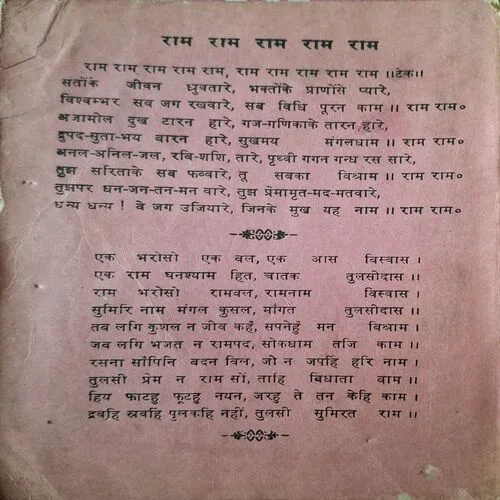 राम राम राम राम राम
राम राम राम राम राम, राम राम राम राम राम ॥टेक॥
संतोंके जीवन ध्रुवतारे, भक्तोंके प्राणोंसे प्यारे,
विश्वम्भर सब जग रखवारे, सब विधि पूरन काम ॥ राम राम०
अजामील दुख टारन हारे, गज-गणिकाके तारन हारे,
द्रुपद-सुता-भय बारन हारे, सुखमय मंगलधाम ॥ राम राम०
अनल-अनिल-जल, रबि-शशि, तारे, पृथ्वी गगन गन्ध रस सारे,
तुझ सरिताके सब फव्वारे, तू सबका विश्राम ॥ राम राम०
तुझपर धन-जन-तन-मन वारे, तुझ प्रेमामृत-मद-मतवारे,
धन्य धन्य ! वे जग उजियारे, जिनके मुख यह नाम ॥ राम राम०
एक भरोसो एक बल, एक आस विस्वास ।
एक राम घनश्याम हित, चातक तुलसीदास ॥
राम भरोसो रामबल, रामनाम विस्वास ।
सुमिरि नाम मंगल कुसल, माँगत तुलसीदास ॥
तब लगि कुशल न जीव कहँ, सपनेहुँ मन विश्राम ।
जब लगि भजत न रामपद, सोकधाम तजि काम ॥
रसना साँपिनि बदन बिल, जो न जपहिं हरि नाम ।
तुलसी प्रेम न राम सों, ताहि बिधाता वाम ॥
हिय फाटहु फूटहु नयन, जरहु ते तन केहि काम ।
द्रवहि स्रवहि पुलकहि नहीं, तुलसी सुमिरत राम ॥